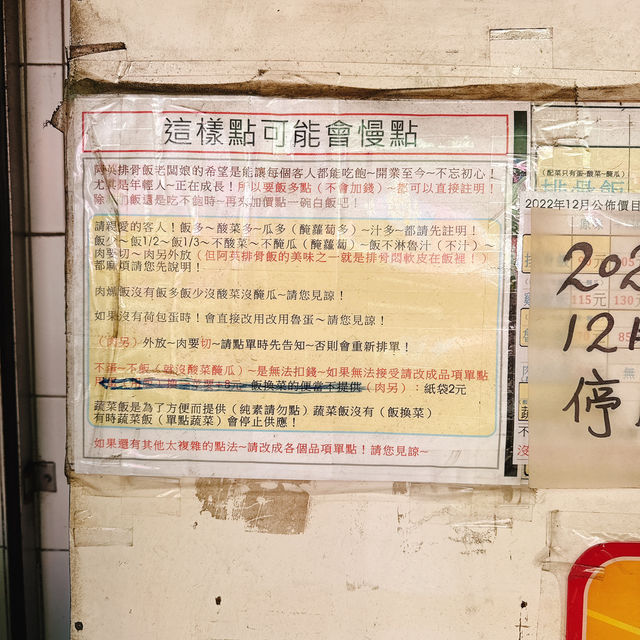 這樣點可能會慢點
阿英排骨飯老闆娘的希望是能讓每個客人都能吃飽~開業至今~不忘初心！
尤其是年輕人~正在成長！所以要飯多點（不會加錢）~都可以直接註明！
除 們飯還是吃不飽時~再來加價點一碗白飯吧！
請親愛的客人！飯多~酸菜多~瓜多（醃蘿蔔多）~汁多~都請先註明！
飯少~飯1/2~飯1/3~不酸菜~不醃瓜（醃蘿蔔）~飯不淋魯汁（不汁）~
肉要切~肉另外放（但阿英排骨飯的美味之一就是排骨悶軟皮在飯裡！）
都麻煩請您先說明！
肉燥飯沒有飯多飯少沒酸菜沒醃瓜~請您見諒！
如果沒有荷包蛋時！會直接改用改用魯蛋~請您見諒！
（肉另）外放~肉要切~請點單時先告知~否則會重新排單！
不菜~不飯（就沒酸菜醃瓜）~是無法扣錢~如果無法接受請改成品項單點
飯換菜的便當不提供（肉另）：紙袋2元
蔬菜飯是為了方便而提供（純素請勿點）蔬菜飯沒有（飯換菜）
有時蔬菜飯（單點蔬菜）會停止供應！
如果還有其他太複雜的點法~請改成各個品項單點！請您見諒~
（配菜只有蛋~酸菜~醃瓜）
排骨飯
2022年12月公佈價目
202
115元 130
12月
85
無
停
蔬
不
沒